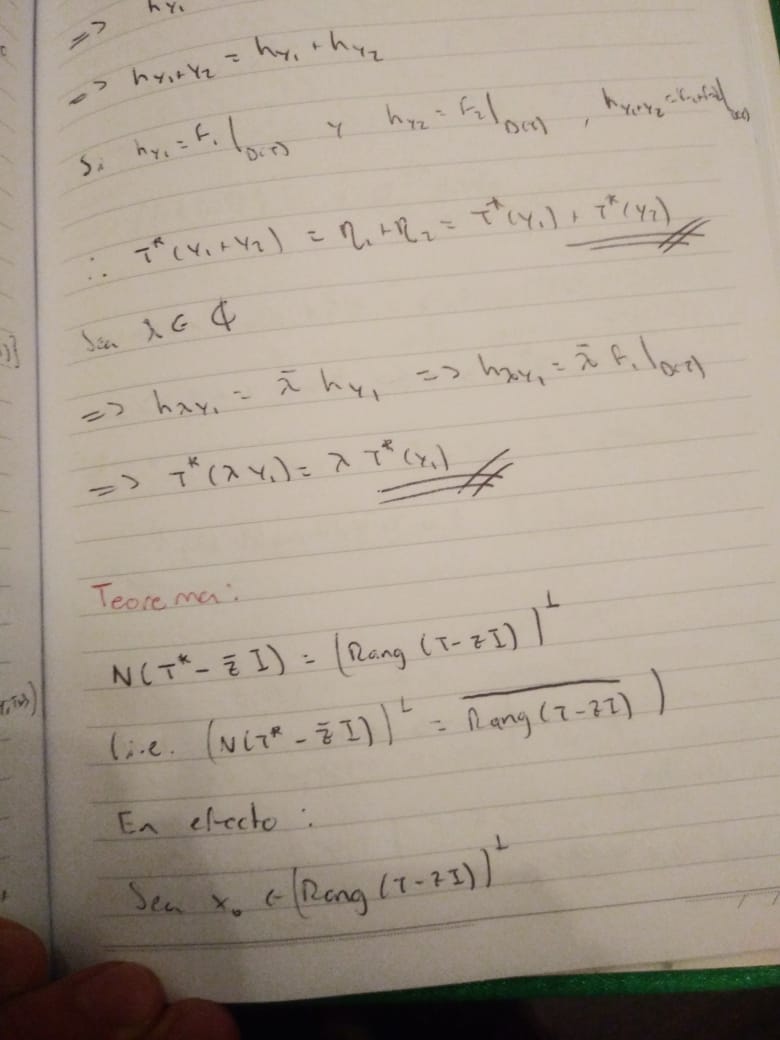 => hy₁
=> hy₁+y₂ = hy₁ + hy₂
Si hy₁ = F₁|D(T) y hy₂ = F₂|D(T) , hy₁+y₂ = F₁+F₂|D(T)
∴ T*(y₁+y₂) = η₁+η₂ = T*(y₁) + T*(y₂)
Sea λ ∈ ℂ
=> hλy₁ = λ̄ hy₁ => hλy₁ = λ̄ F₁|D(T)
=> T*(λy₁) = λ T*(y₁)
Teorema:
N(T* - z̄ I) = (Rang (T - zI))^⊥
(i.e. (N(T* - z̄ I))^⊥ = \overline{Rang (T - zI)})
En efecto:
Sea x₀ ∈ (Rang (T - zI))^⊥